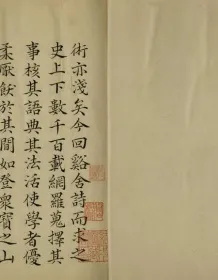 術亦淺矣今回谿舍詩而求之
史上下數千百載網羅蒐擇其
事核其語典其法活使學者優
柔厭飫於其間如登衆寶之山